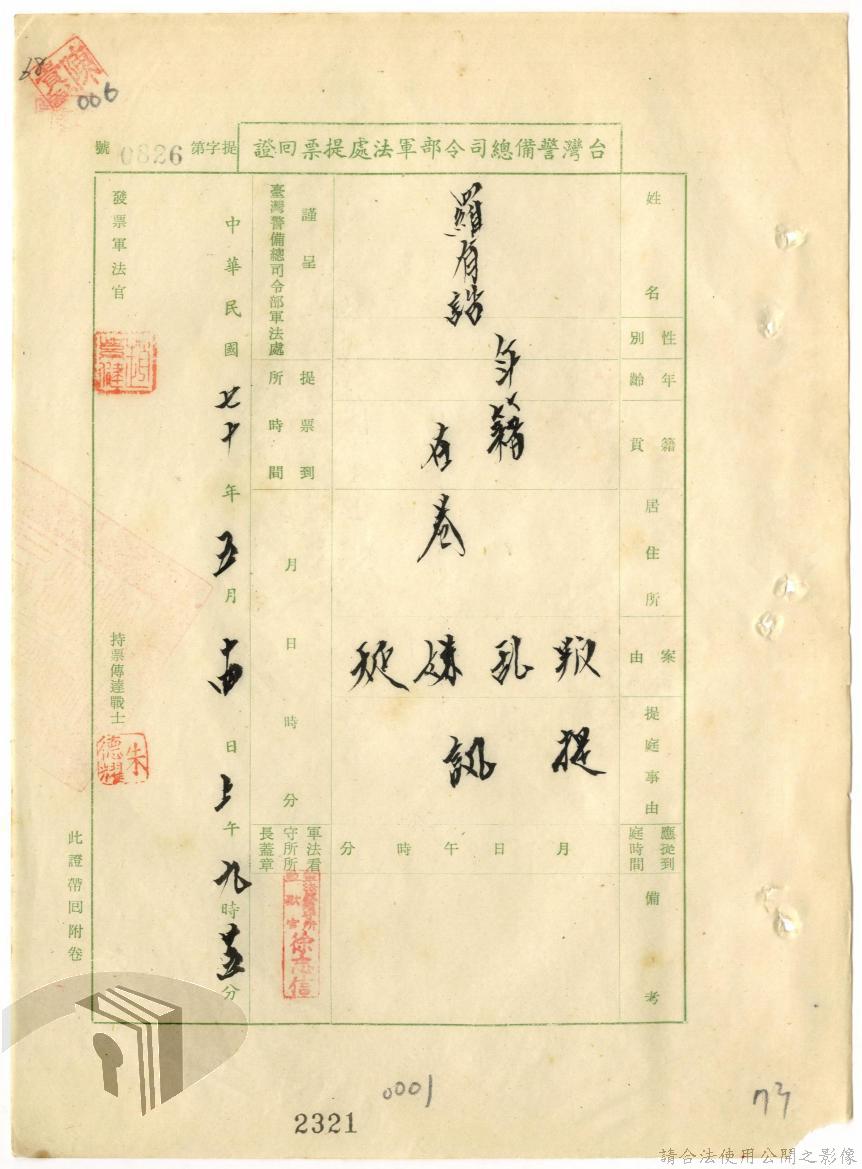 68
006
台灣警備總司令部軍法處提票回證
提字第0826號
姓名
羅有誥
性別
年齡
籍貫
年籍
在卷
居住所
案由
叛乱嫌疑
提庭事由
提訊
應提到庭時間
月 日 午 時 分
備考
謹呈
臺灣警備總司令部軍法處
提票到所時間
月 日 時 分
軍法看守所所長蓋章
徐志信
中華民國七十年五月古日上午九時五分
發票軍法官
持票傳達戰士
朱德耀
此證帶回附卷
0001
2321
73
請合法使用公開之影像